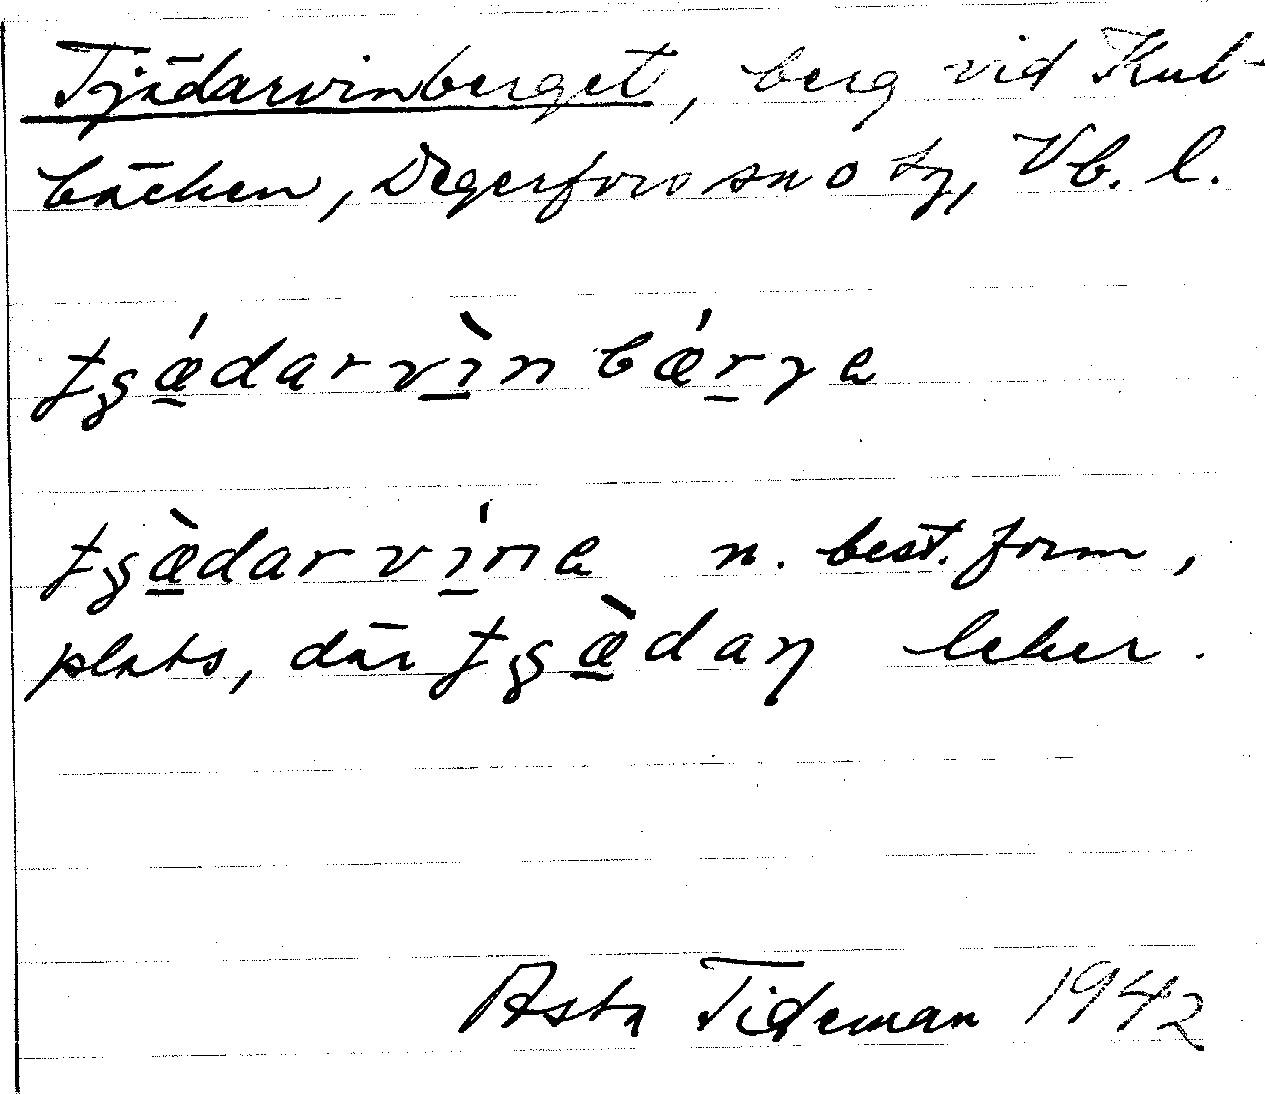 Tjädarvinberget, berg vid Kul-
bäcken, Degerfors sn o tg, Vb. l.
ʈʂæ̀́darvìnbǽrɣe
ʈʂæ̀darvíne n. best. form,
plats, där ʈʂæ̀daṇ leker.
Asta Tideman 1942